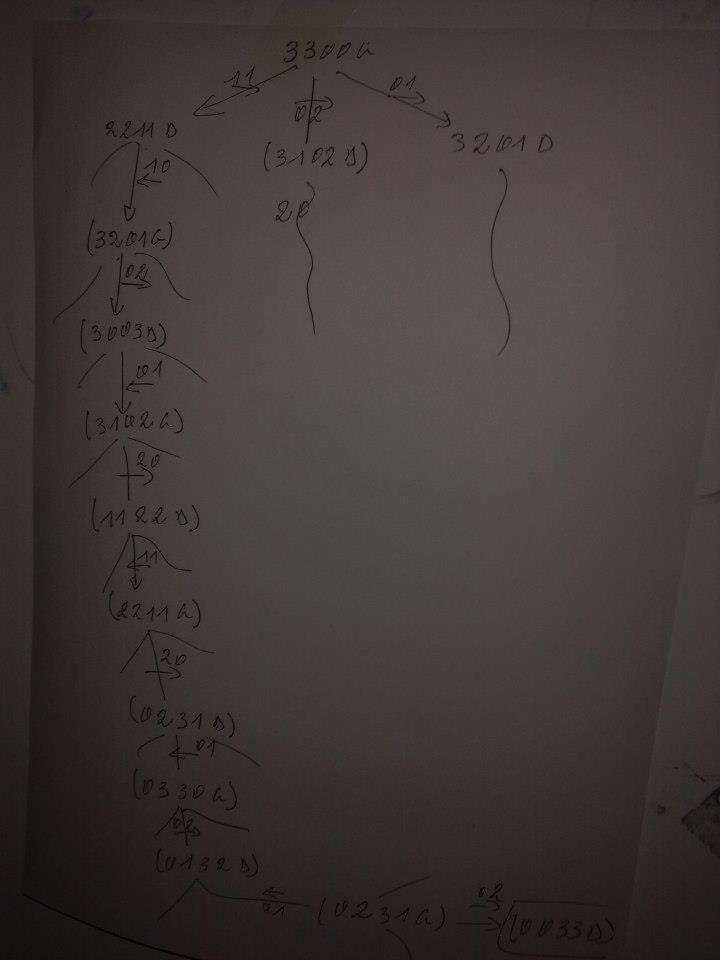 3300G
11
02
01
2211D
(3102D)
3201D
10
20
(3201G)
02
(3003D)
01
(3102G)
20
(1122D)
11
(2211G)
20
(0231D)
01
(0330G)
02
(0132D)
01
(0231G)
02
(0033D)